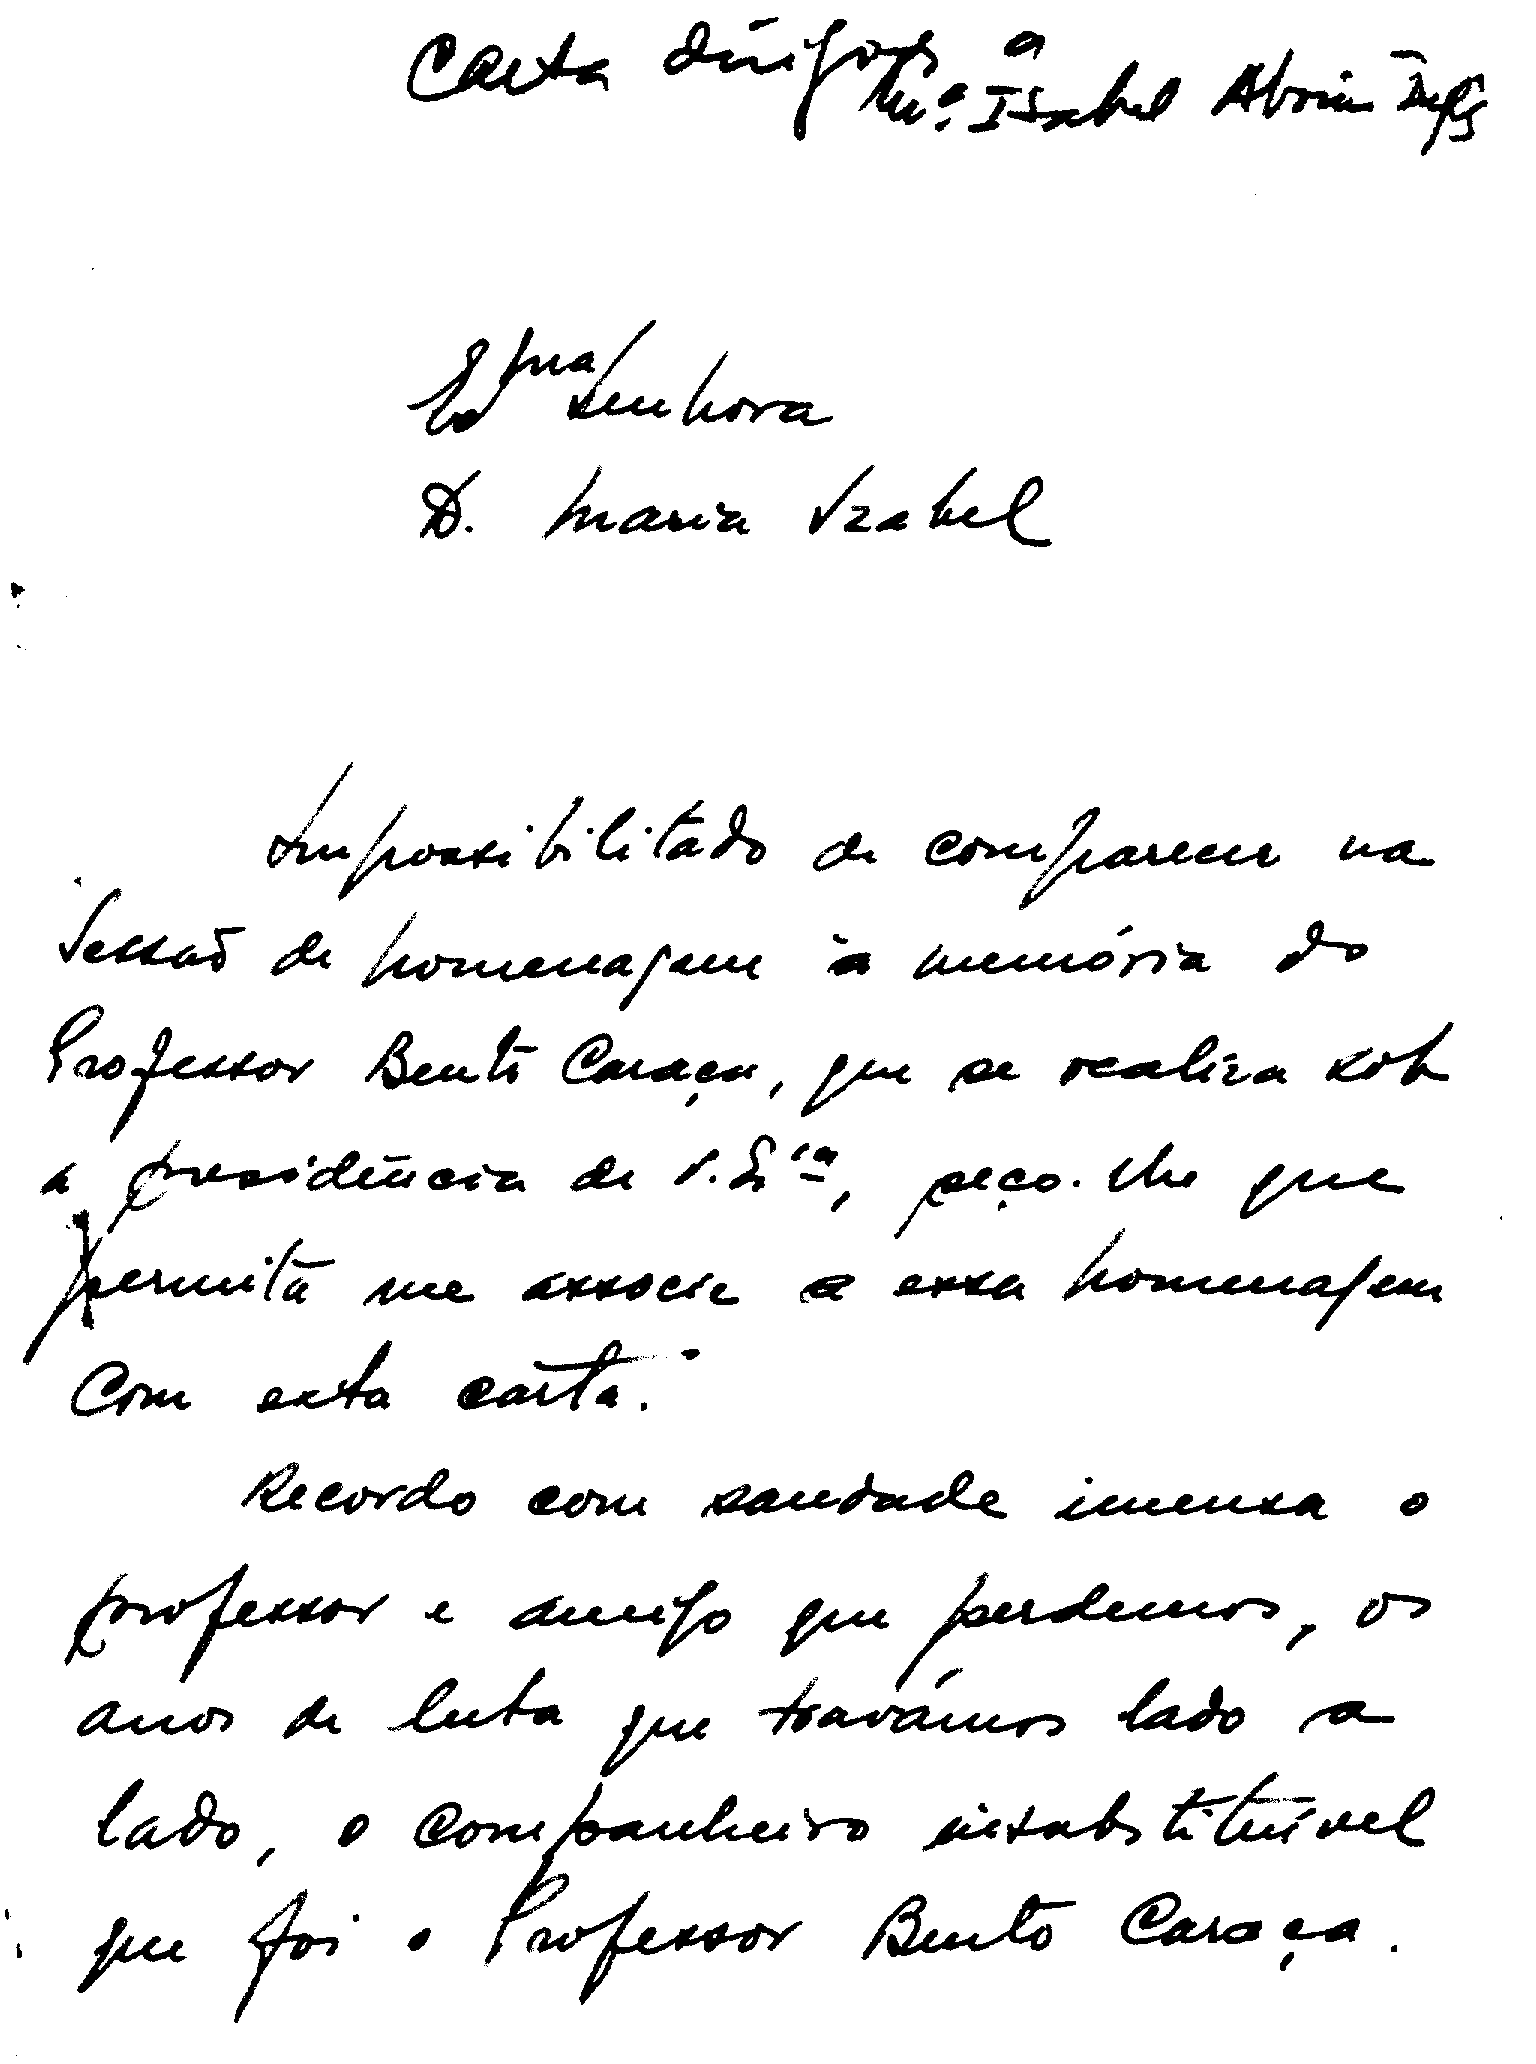 Carta dirigida a
Mª. Isabel Aboim
Exma Senhora
D. Maria Izabel
Impossibilitado de comparecer na
Sessão de homenagem à memória do
Professor Bento Caraça, que se realiza sob
a presidência de V. Exª, peço-lhe que
permita me associe a essa homenagem
com esta carta.
Recordo com saudade imensa o
professor e amigo que perdemos, os
anos de luta que travámos lado a
lado, o companheiro insubstituível
que foi o Professor Bento Caraça.